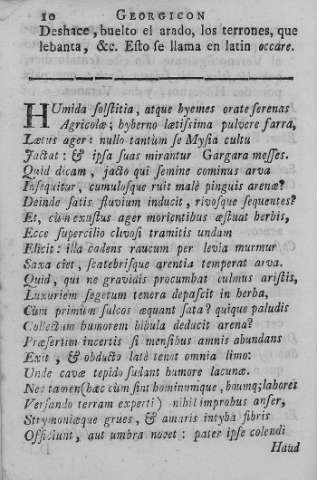 10 GEORGICON
Deshace, buelto el arado, los terrones, que
lebanta, &c. Esto se llama en latin occare.
HUmida solstitia, atque hyemes orate serenas
Agricolæ; hyberno lætissima pulvere farra,
Lætus ager: nullo tantum se Mysia cultu
Jactat: & ipsa suas mirantur Gargara messes.
Quid dicam, jacto qui semine cominus arva
Insequitur, cumulosque ruit malè pinguis arenæ?
Deinde satis fluvium inducit, rivosque sequentes?
Et, cùm exustus ager morientibus æstuat herbis,
Ecce supercilio clivosi tramitis undam
Elicit: illa cadens raucum per levia murmur
Saxa ciet, scatebrisque arentia temperat arva.
Quid, qui ne gravidis procumbat culmus aristis,
Luxuriem segetum tenera depascit in herba,
Cùm primùm sulcos æquant sata? quique paludis
Collectum humorem bibula deducit arena?
Præsertim incertis si mensibus amnis abundans
Exit, & obducto latè tenet omnia limo:
Unde cavæ tepido sudant humore lacunæ.
Nec tamen (hæc cùm sint hominumque, boumq; labores
Versando terram experti) nihil improbus anser,
Strymoniæque grues, & amaris intyba fibris
Officiunt, aut umbra nocet: pater ipse colendi
Haud